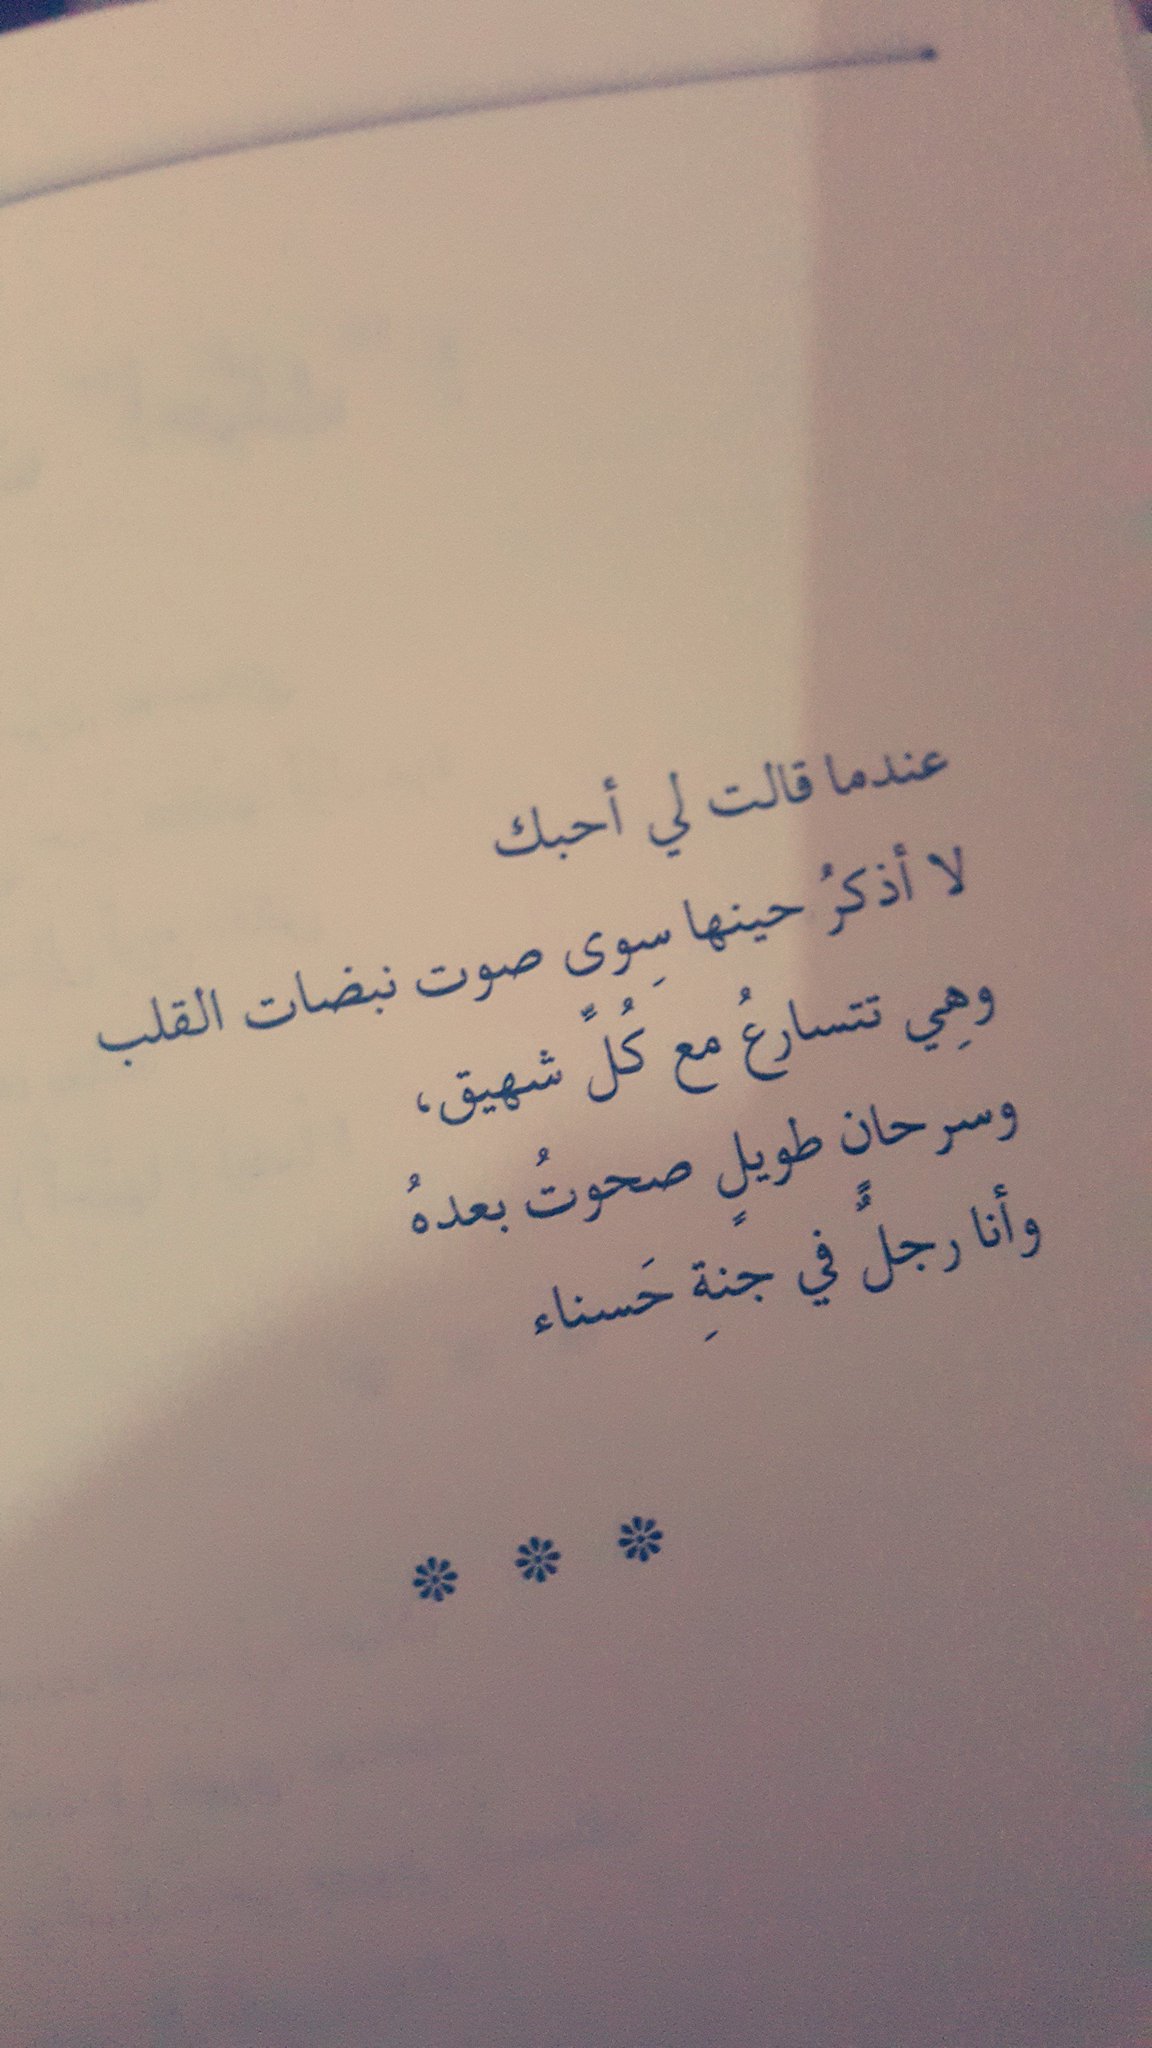 عندما قالت لي أحبك
لا أذكرُ حينها سِوى صوت نبضات القلب
وهِي تتسارعُ مع كُلً شهيق،
وسرحان طويلٍ صحوتُ بعدهُ
وأنا رجلٌ في جنةِ حَسناء